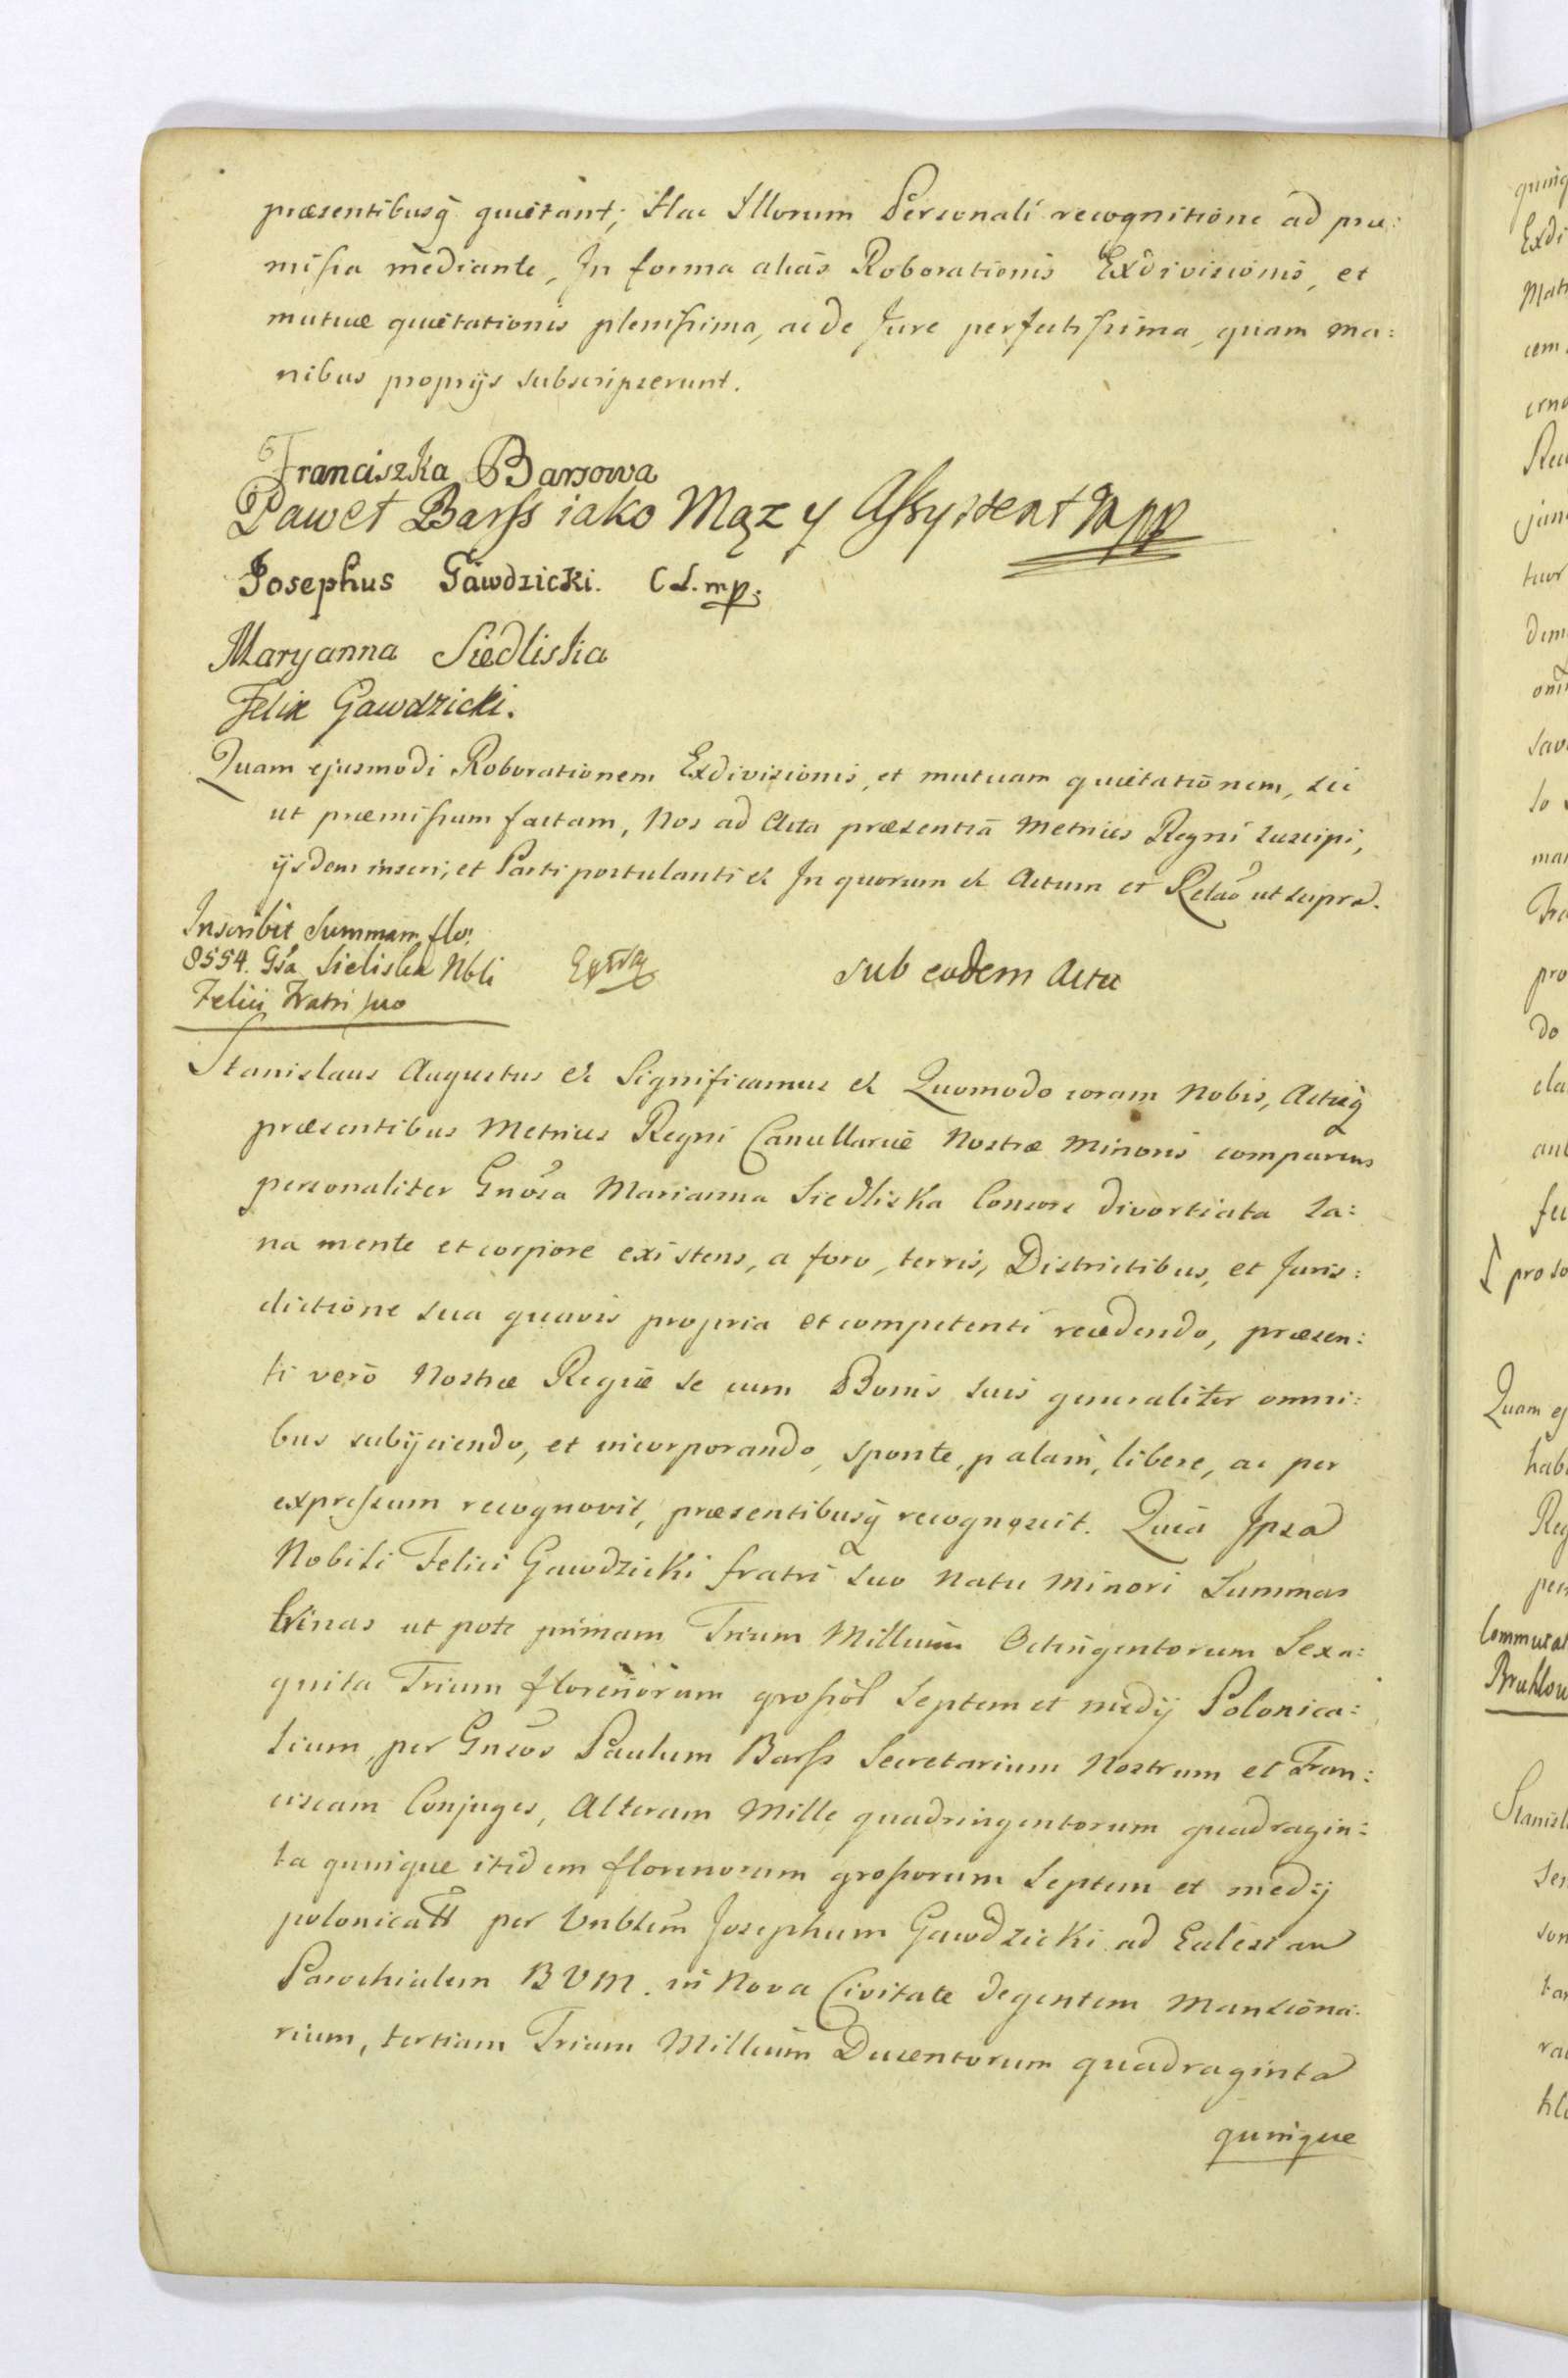 præsentibusq̃ quiẽtant; Hac Illorum Personali recognitione ad præ:
missa mediante, In forma aliàs Roborationis Exdivisionis, et
mutuæ quiẽtationis plenissima, ac de Jure perfectissima, quam ma:
nibus proprijs subscripserunt.
Franciszka Barsowa
Paweł Barss iako Mąz y Assystent mpp
Josephus Gawdzicki. C S. mp.
Maryanna Siedliska
Felix Gawdzicki.
Quam ejusmodi Roborationem Exdivisionis, et mutuam quiẽtationem, sic
ut præmissum factam, Nos ad Acta præsentia Metrices Regni suscipi,
ijsdem inseri, et Parti postulanti &c In quorum &c Actum et Relaõ ut supra.
Inscribit Summam flo:
8554. Gsa Sieliska Nbli
Felici Fratri suo
sub eodem Actu
Stanislaus Augustus &c Significamus &c Quomodo coram Nobis, Actisq̃
præsentibus Metrices Regni Cancellariæ Nostræ Minoris comparens
personaliter Gnõsa Marianna Siedliska Consors divortiata sa:
na mente et corpore existens, a foro, terris, Districtibus, et Juris:
dictione sua quavis propria et competenti recedendo, præsen:
ti verò Nostræ Regiæ se cum Bonis suis generaliter omni:
bus subijciendo, et incorporando, sponte, palam, libere, ac per
expressum recognovit, præsentibusq̃ recognoscit. Quia Ipsa
Nobili Felici Gawdzicki fratri suo Natu Minori Summas
trinas ut pote primam Trium Millium Octingentorum Sexa:
ginta Trium florenorum grossõl Septem et medij Polonica:
lium, per Gnsos Paulum Barss Secretarium Nostrum et Fran:
ciscam Conjuges, Alteram Mille quadringentorum quadragin:
ta quinque itidem florenorum grossorum Septem et medij
polonicall per Vnblem̃ Josephum Gawdzicki ad Ecclesiam
Parochialem B V M. in Nova Civitate degentem Mansiona:
rium, tertiam Trium Millium Ducentorum quadraginta
quinque
quinq
Exdi
Mat
cem
erno
jan
tuor
dem
sav
lo
mar
Fra
pro
do
cla
fu
pro so
Quam ej
hab
Reg
per
Commutat
Bruhlow
Stanisl
Ser
son
tan